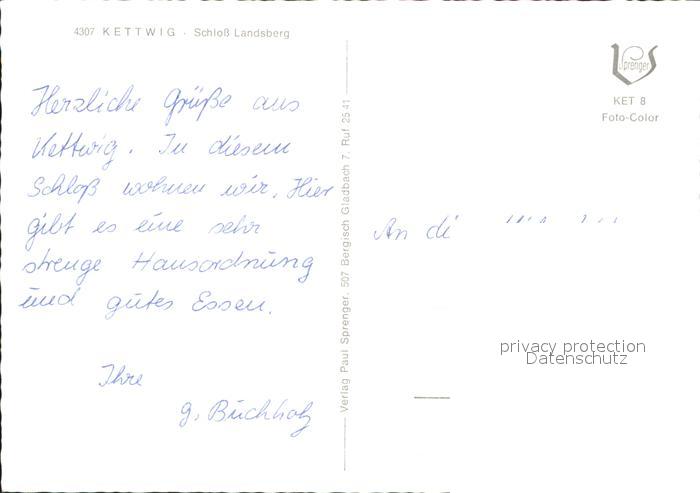 4307 KETTWIG · Schloß Landsberg
Herzliche Grüße aus
Kettwig. In diesem
Schloß wohnen wir. Hier
gibt es eine sehr
strenge Hausordnung
und gutes Essen.
Ihre
G. Buchholz
Verlag Paul Sprenger, 507 Bergisch Gladbach 7, Ruf 25 41
Sprenger
KET 8
Foto-Color
An di
privacy protection
Datenschutz